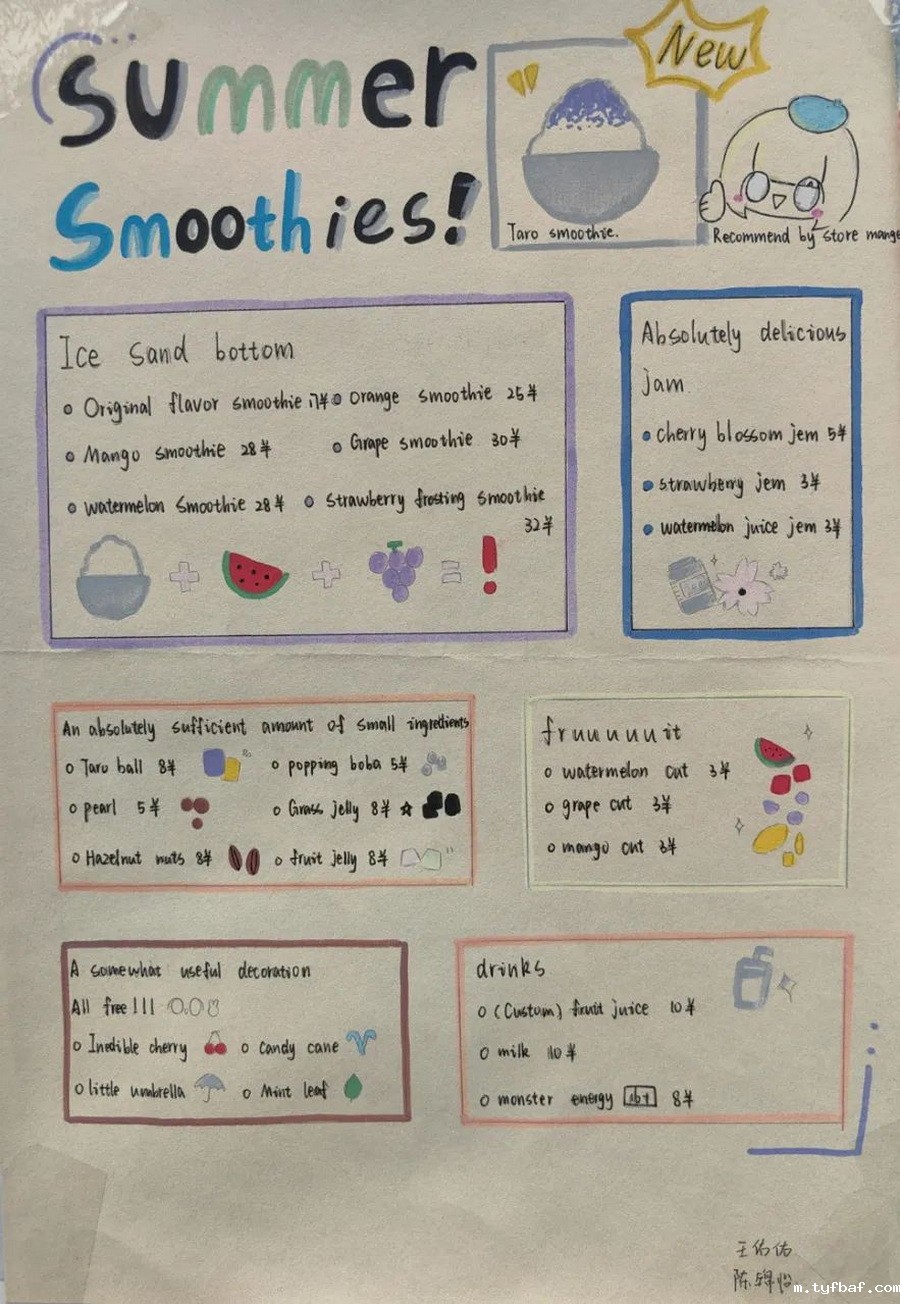 Summer
Smoothies!
New
Taro smoothie.
Recommend by store mange
Ice sand bottom
Original flavor smoothie 17¥
Orange smoothie 25¥
Mango smoothie 28¥
Grape smoothie 30¥
watermelon smoothie 28¥
strawberry frosting smoothie
32¥
Absolutely delicious
jam
cherry blossom jem 5¥
strawberry jem 3¥
watermelon juice jem 3¥
An absolutely sufficient amount of small ingredients
Taro ball 8¥
popping boba 5¥
pearl 5¥
Grass jelly 8¥
Hazelnut nuts 8¥
fruit jelly 8¥
fruuuuuit
watermelon cut 3¥
grape cut 3¥
mango cut 3¥
A somewhat useful decoration
All free!!!
Inedible cherry
candy cane
little umbrella
Mint leaf
drinks
(Custom) fruit juice 10¥
milk 10¥
monster energy 8¥
m.tyfbaf.com